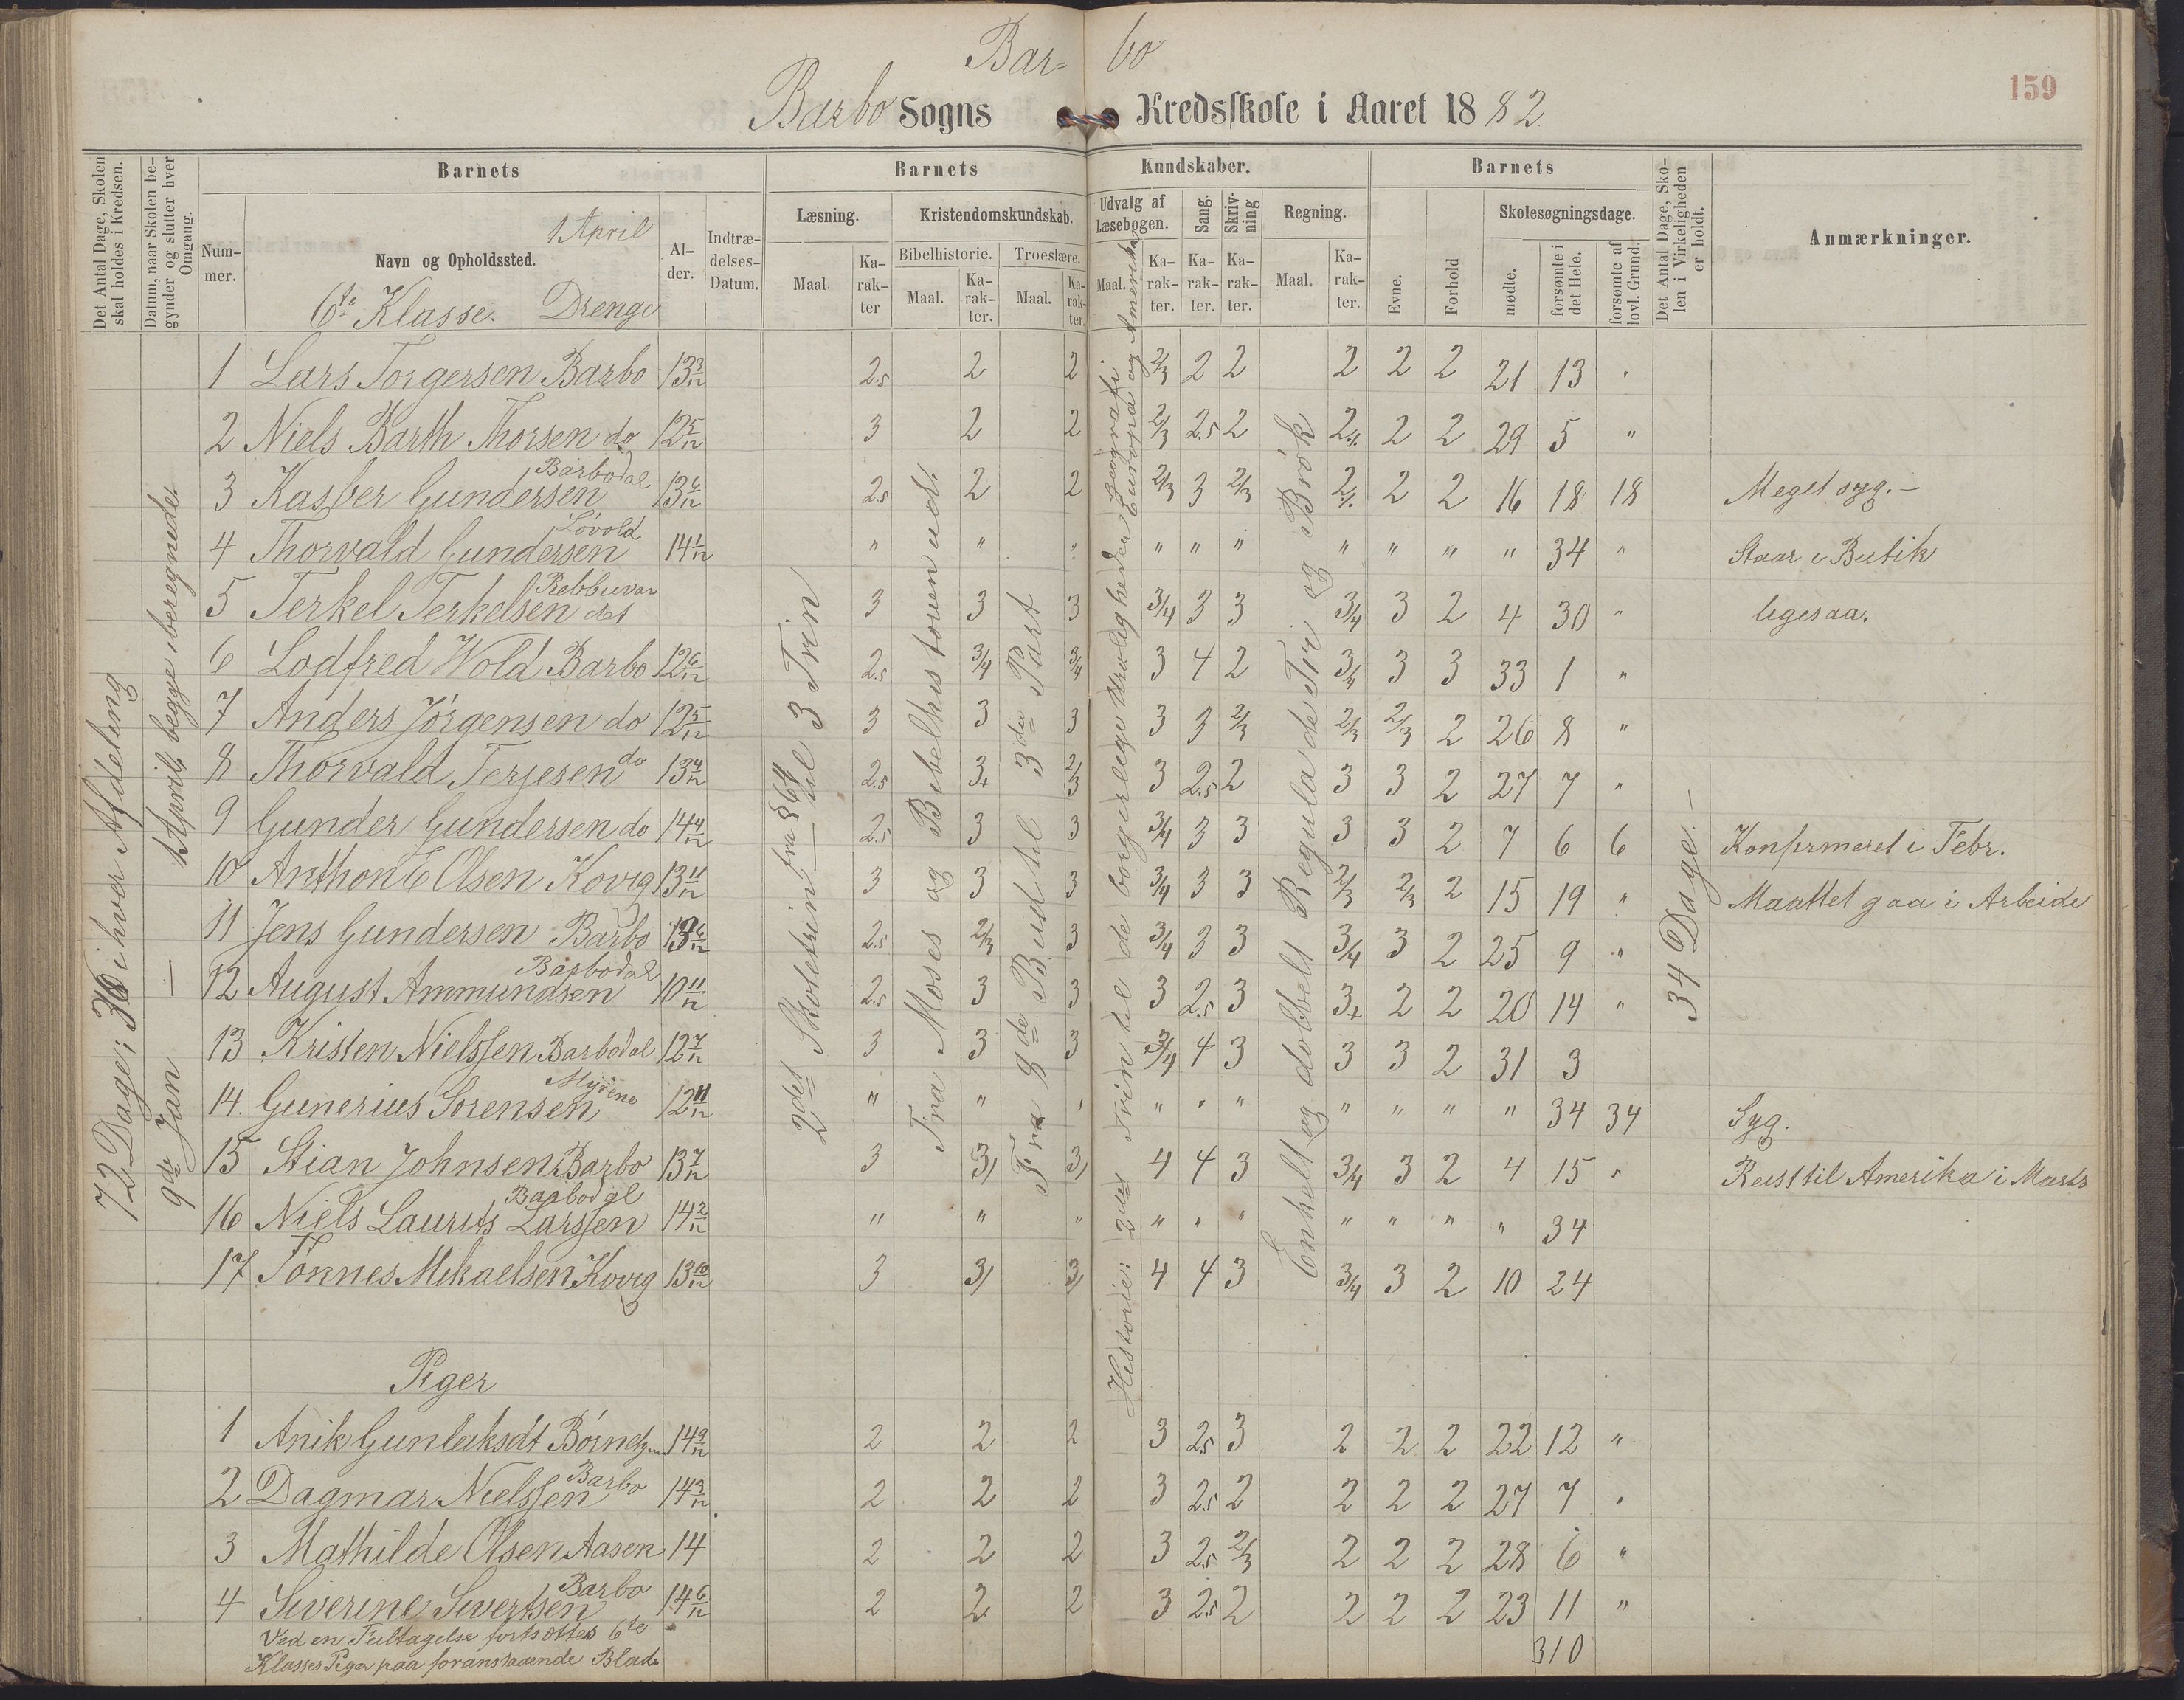 Bar= bo
159
Barbo Sogns Kredsskole i Aaret 1882.
Det Antal Dage, Skolen skal holdes i Kredsen.
Datum, naar Skolen begynder og slutter hver Omgang.
Barnets
Barnets
Kundskaber.
Barnets
Det Antal Dage, Skolen i Virkeligheden er holdt.
Anmærkninger.
Nummer.
Navn og Opholdssted.
1 April
6te Klasse. Drenge
Alder.
Indtrædelses-Datum.
Læsning.
Kristendomskundskab.
Udvalg af Læsebogen.
Sang.
Skrivning
Regning.
Skolesøgningsdage.
Bibelhistorie.
Troeslære.
Maal. Karakter
Maal. Karakter.
Maal. Karakter.
Maal. Karakter. Karakter. Karakter.
Maal. Karakter.
Evne. Forhold mødte. forsømte i det Hele. forsømte af lovl. Grund.
72 Dage; 36 i hver Afdeling
9de Jan — 1 April, begge iberegnede.
2det Skoletrin fra § 64 til 3 Trin
Fra Moses og Bibelhistorien ud.
Fra 8de Bud til 3die Part
Historie: 2det Trin til de borgerlige Uroligheder geografi Europa og Amerika
Enkelt og dobbelt Regula de Tri og Brøk
34 Dage. —
1 Lars Torgersen Barbo 13 3/12 2.5 2 2 2/3 2 2 2 2 2 21 13 "
2 Niels Barth Thorsen do 12 5/12 3 2 2 2/3 2.5 2 2 1/. 2 2 29 5 "
3 Kasper Gundersen Barbodal 13 6/12 2.5 2 2 2/3 3 2/3 2 1/. 2 2 16 18 18 Meget syg. —
4 Thorvald Gundersen Lövold 14 1/12 " " " " " " " " " " 34 " Staar i Butik
5 Terkel Terkelsen 3 3 3 3/4 3 3 3/4 3 2 4 30 " ligesaa.
6 Lodfred Wold Barbo 12 6/12 2.5 3/4 3/4 3 4 2 3/4 3 3 33 1 "
7 Anders Jörgensen do 12 5/12 3 3 3 3 3 2/3 2/3 2/3 2 26 8 "
8 Thorvald Terjesen do 13 4/12 2.5 3+ 2/3 3 2.5 2 3 3 2 27 7 "
9 Gunder Gundersen do 14 4/12 2.5 3 3 3/4 3 3 3 3 2 7 6 6 Konfirmeret i Febr.
10 Anthon E Olsen Kovig 13 11/12 3 3 3 3/4 3 3 2/3 2/3 2 15 19 " Maattet gaa i Arbeide
11 Jens Gundersen Barbo 13 6/12 2.5 2/3 3 3/4 3 3 3/4 3 2 25 9 "
12 August Ammundsen Barbodal 10 11/12 2.5 3 3 3 2.5 3 3+ 2 2 20 14 "
13 Kristen Nielssen Barbodal 12 7/12 3 3 3 3/4 4 3 3 3 2 31 3
14. Gunerius Sorensen Myrene 12 11/12 " " " " " " " " " " 34 34 Syg.
15 Stian Johnsen Barbo 13 7/12 3 3/ 3/ 4 4 3 3/4 3 2 4 15 " Reist til Amerika i Marts
16 Niels Laurits Larssen Barbodal 14 2/12 " " " " " " " " " " 34
17 Tönnes Mikaelsen Kovig 13 10/12 3 3/ 3/ 4 4 3 3/4 3 2 10 24
Piger
1 Anik Gunlaksdt 14 9/12 2 2 2 3 2.5 3 2 2 2 22 12 "
2 Dagmar Nielssen Barbo 14 3/12 2 2 2 3 2.5 2 2 2 2 27 7 "
3 Mathilde Olsen Aasen 14 2 2 2 3 2.5 2/3 2 2 2 28 6 "
4 Siverine Sivertsen Barbo 14 6/12 2 2 2 3 2.5 2 2 2 2 23 11 "
Ved en Feiltagelse fortsættes 6te
Klasses Piger paa foranstaaende Blad.
310